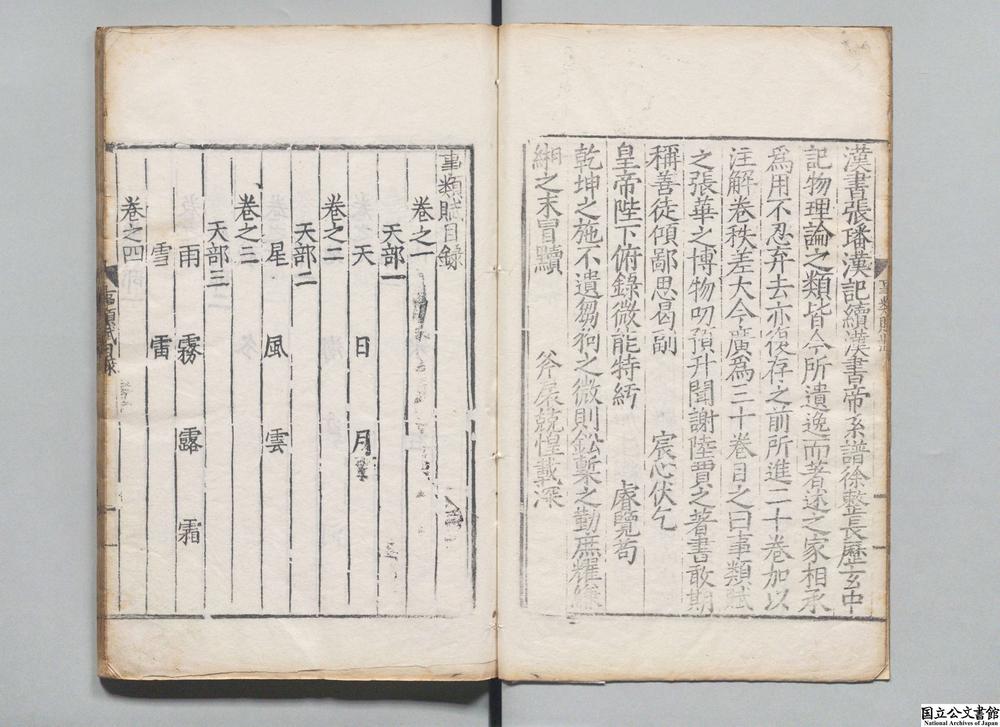 漢書張璠漢記續漢書帝系譜徐整長歷玄中
記物理論之類皆今所遺逸而著述之家相承
爲用不忍弃去亦復存之前所進二十卷加以
注解卷秩差大今廣爲三十卷目之曰事類賦
之張華之博物叨預升聞謝陸賈之著書敢期
稱善徒傾鄙思曷副 宸心伏乞
皇帝陛下俯錄微能特紆 睿覽苟
乾坤之施不遺芻狗之微則鈆槧之勤庶耀縑
緗之末冒黷 斧扆兢惶載深
事類賦目録
卷之一
天部一
天 日 月
卷之二
天部二
星 風 雲
卷之三
天部三
雨 霧 露 霜
雪 雷
卷之四
事類賦目録
国立公文書館
National Archives of Japan